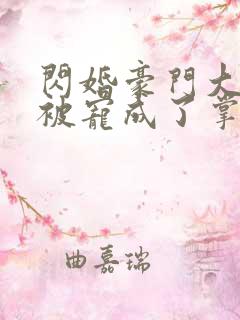 閃婚豪門大
被寵成了掌
曲嘉瑞